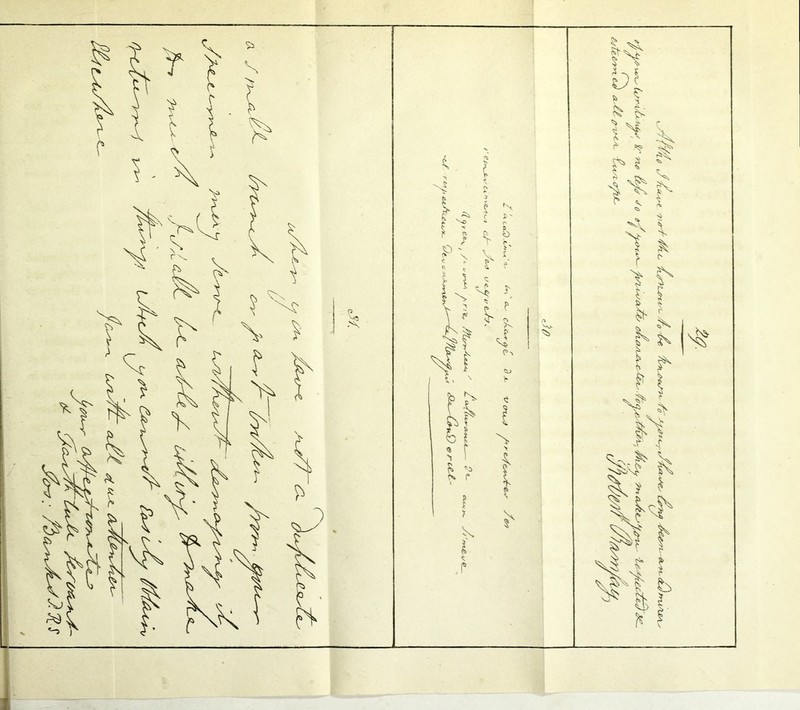 29.
Altho I have not the honour to be known to you, I have long been an admirer
of your writings, & no less so of your private character together, they make you respected &
esteemed all over Europe.
Robert Ramsay,
30
L'académie m'a chargé de vous présenter ses
remerciemens et ses regrets.
Agréez, je vous prie, Monsieur L'assurance de mon sincere
et respectueux devouement Le Marquis de Condorcet
31.
when you have not a Duplicate
a small branch or part broken from your
Specimen may serve without damaging it
& much I shall be able & willing to make
returns in things which you cannot easily obtain
Elsewhere
I am with all due attention
your affectionate
& Faithfull Servant
Jos: Banks P.R.S